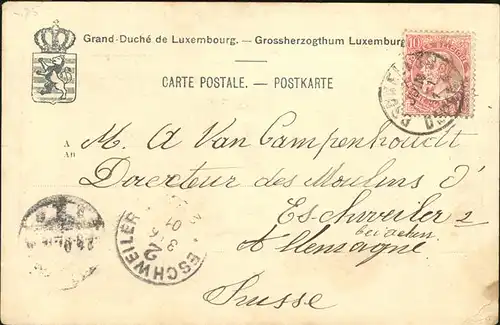 Grand-Duché de Luxembourg. — Grossherzogthum Luxemburg
CARTE POSTALE. — POSTKARTE
10
A
An
M. A Van Campenhoudt
Directeur des Moulins d'
Eschweiler 2
bei Achen
Allemagne
Prusse
ESCHWEILER
2